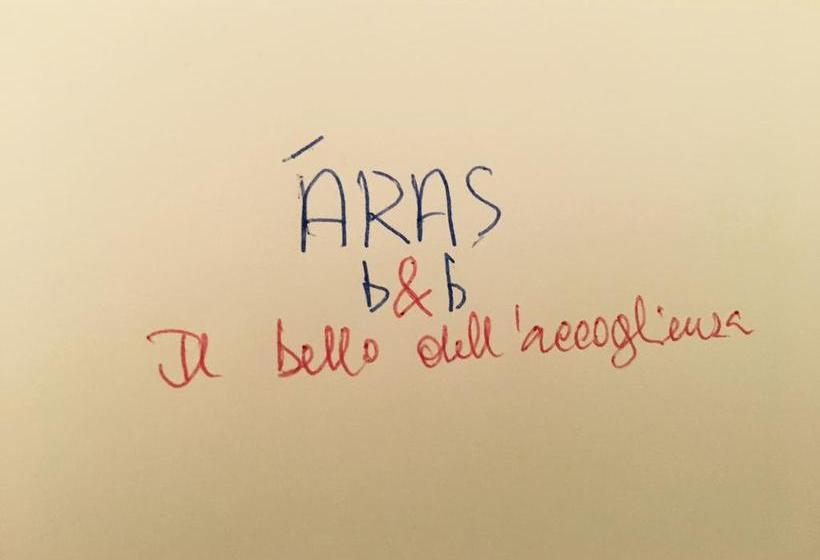 ÁRAS
b&b
Il bello dell'accoglienza